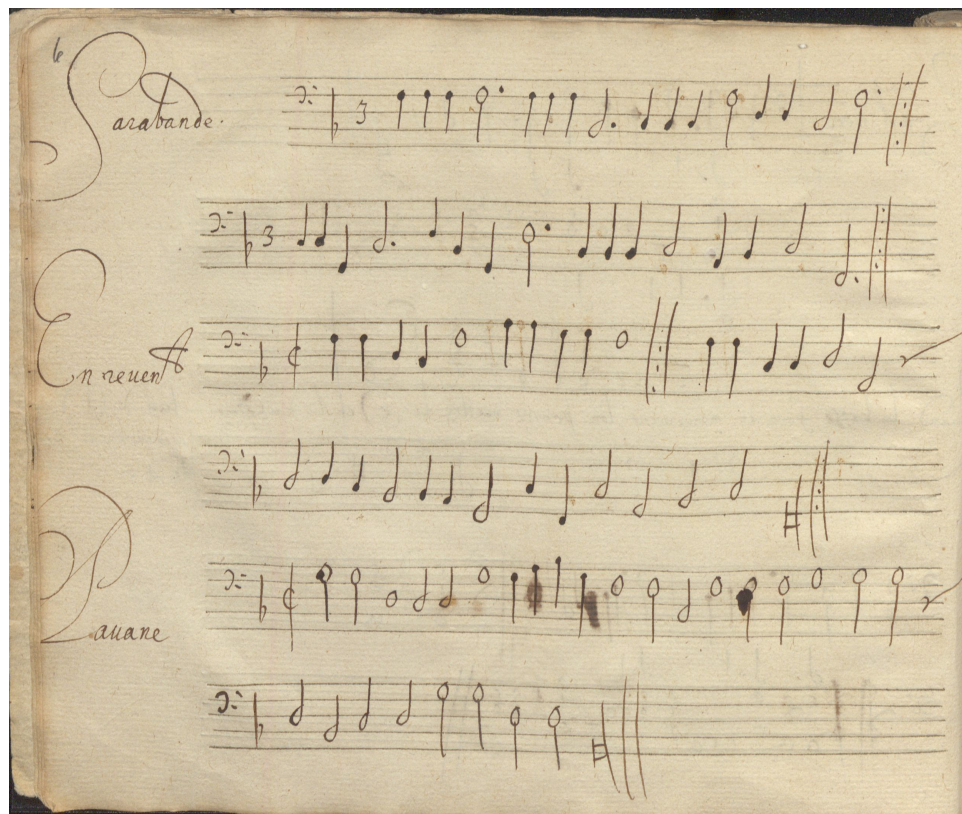 6
Sarabande.
3
3
En reuenAt
Pauane